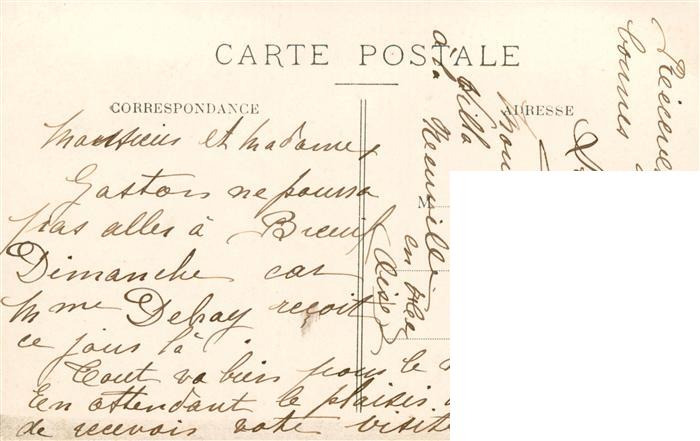 CARTE POSTALE
CORRESPONDANCE
ADRESSE
M
Monsieur et Madame,
Gaston ne poura
pas aller à
Dimanche car
Mme Dehay reçoit
ce jour là.
Tout va bien pour le
En attendant le plaisir
de recevoir votre visite
Recevez
bonnes
Villa
Neuville